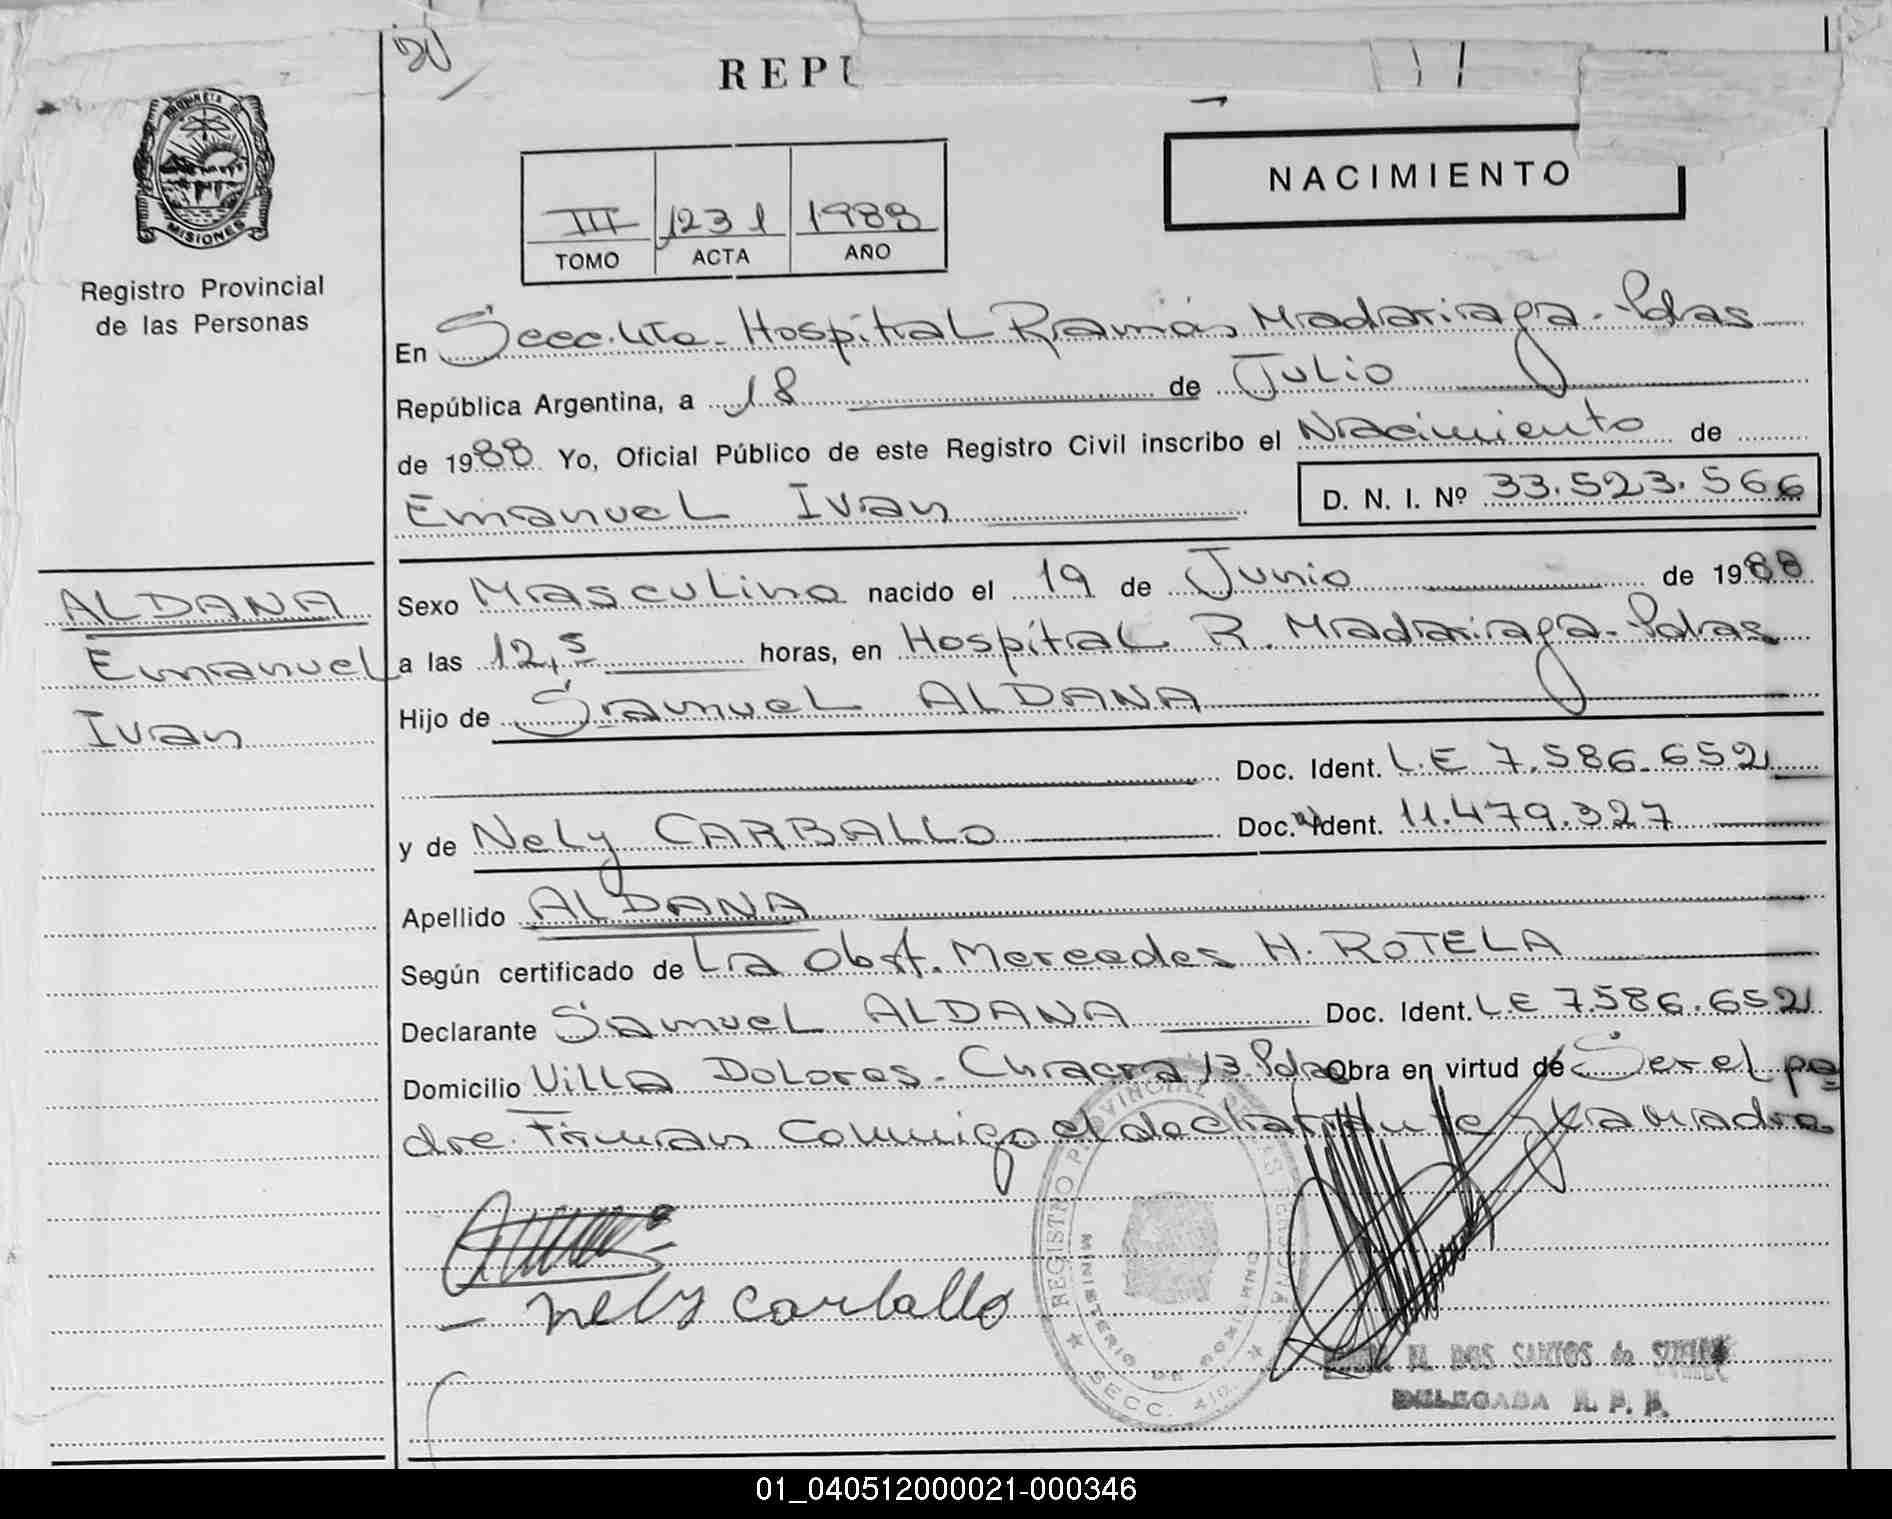 20
REPU
PROVINCIA DE
MISIONES
Registro Provincial
de las Personas
III 1231 1988
TOMO ACTA AÑO
NACIMIENTO
En Secc. 4ta. Hospital Ramón Madariaga - Pdas
República Argentina, a 18 de Julio
de 1988 Yo, Oficial Público de este Registro Civil inscribo el Nacimiento de
Emanuel Ivan
D. N. I. Nº 33.523.566
ALDANA
Emanuel
Ivan
Sexo Masculino nacido el 19 de Junio de 1988
a las 12,5 horas, en Hospital R. Madariaga - Pdas
Hijo de Samuel ALDANA
Doc. Ident. L.E 7.586.652
y de Nely CARBALLO Doc. Ident. 11.479.327
Apellido ALDANA
Según certificado de La Obst. Mercedes H. ROTELA
Declarante Samuel ALDANA Doc. Ident. L.E 7.586.652
Domicilio Villa Dolores - Chacra 13 Pdas Obra en virtud de Ser el pa
dre. Firman conmigo el declarante y la madre
nely carballo
REGISTRO PROVINCIAL DE LAS PERSONAS
MINISTERIO DE GOBIERNO
SECC. 4ta.
M. DOS SANTOS de
DELEGADA R. P. P.
01_040512000021-000346